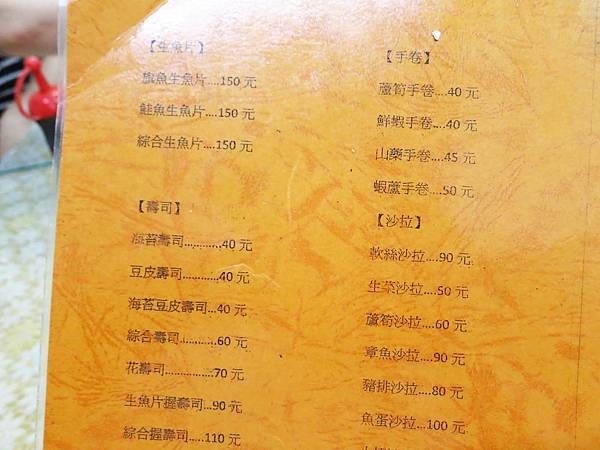 【生魚片】
旗魚生魚片....150 元
鮭魚生魚片....150 元
綜合生魚片....150 元
【壽司】
海苔壽司...........40 元
豆皮壽司...........40 元
海苔豆皮壽司...40 元
綜合壽司...........60 元
花壽司...............70 元
生魚片握壽司...90 元
綜合握壽司.....110 元
【手卷】
蘆筍手卷....40 元
鮮蝦手卷....40 元
山藥手卷....45 元
蝦蘆手卷....50 元
【沙拉】
軟絲沙拉....90 元
生菜沙拉....50 元
蘆筍沙拉....60 元
章魚沙拉....90 元
豬排沙拉....80 元
魚蛋沙拉...100 元